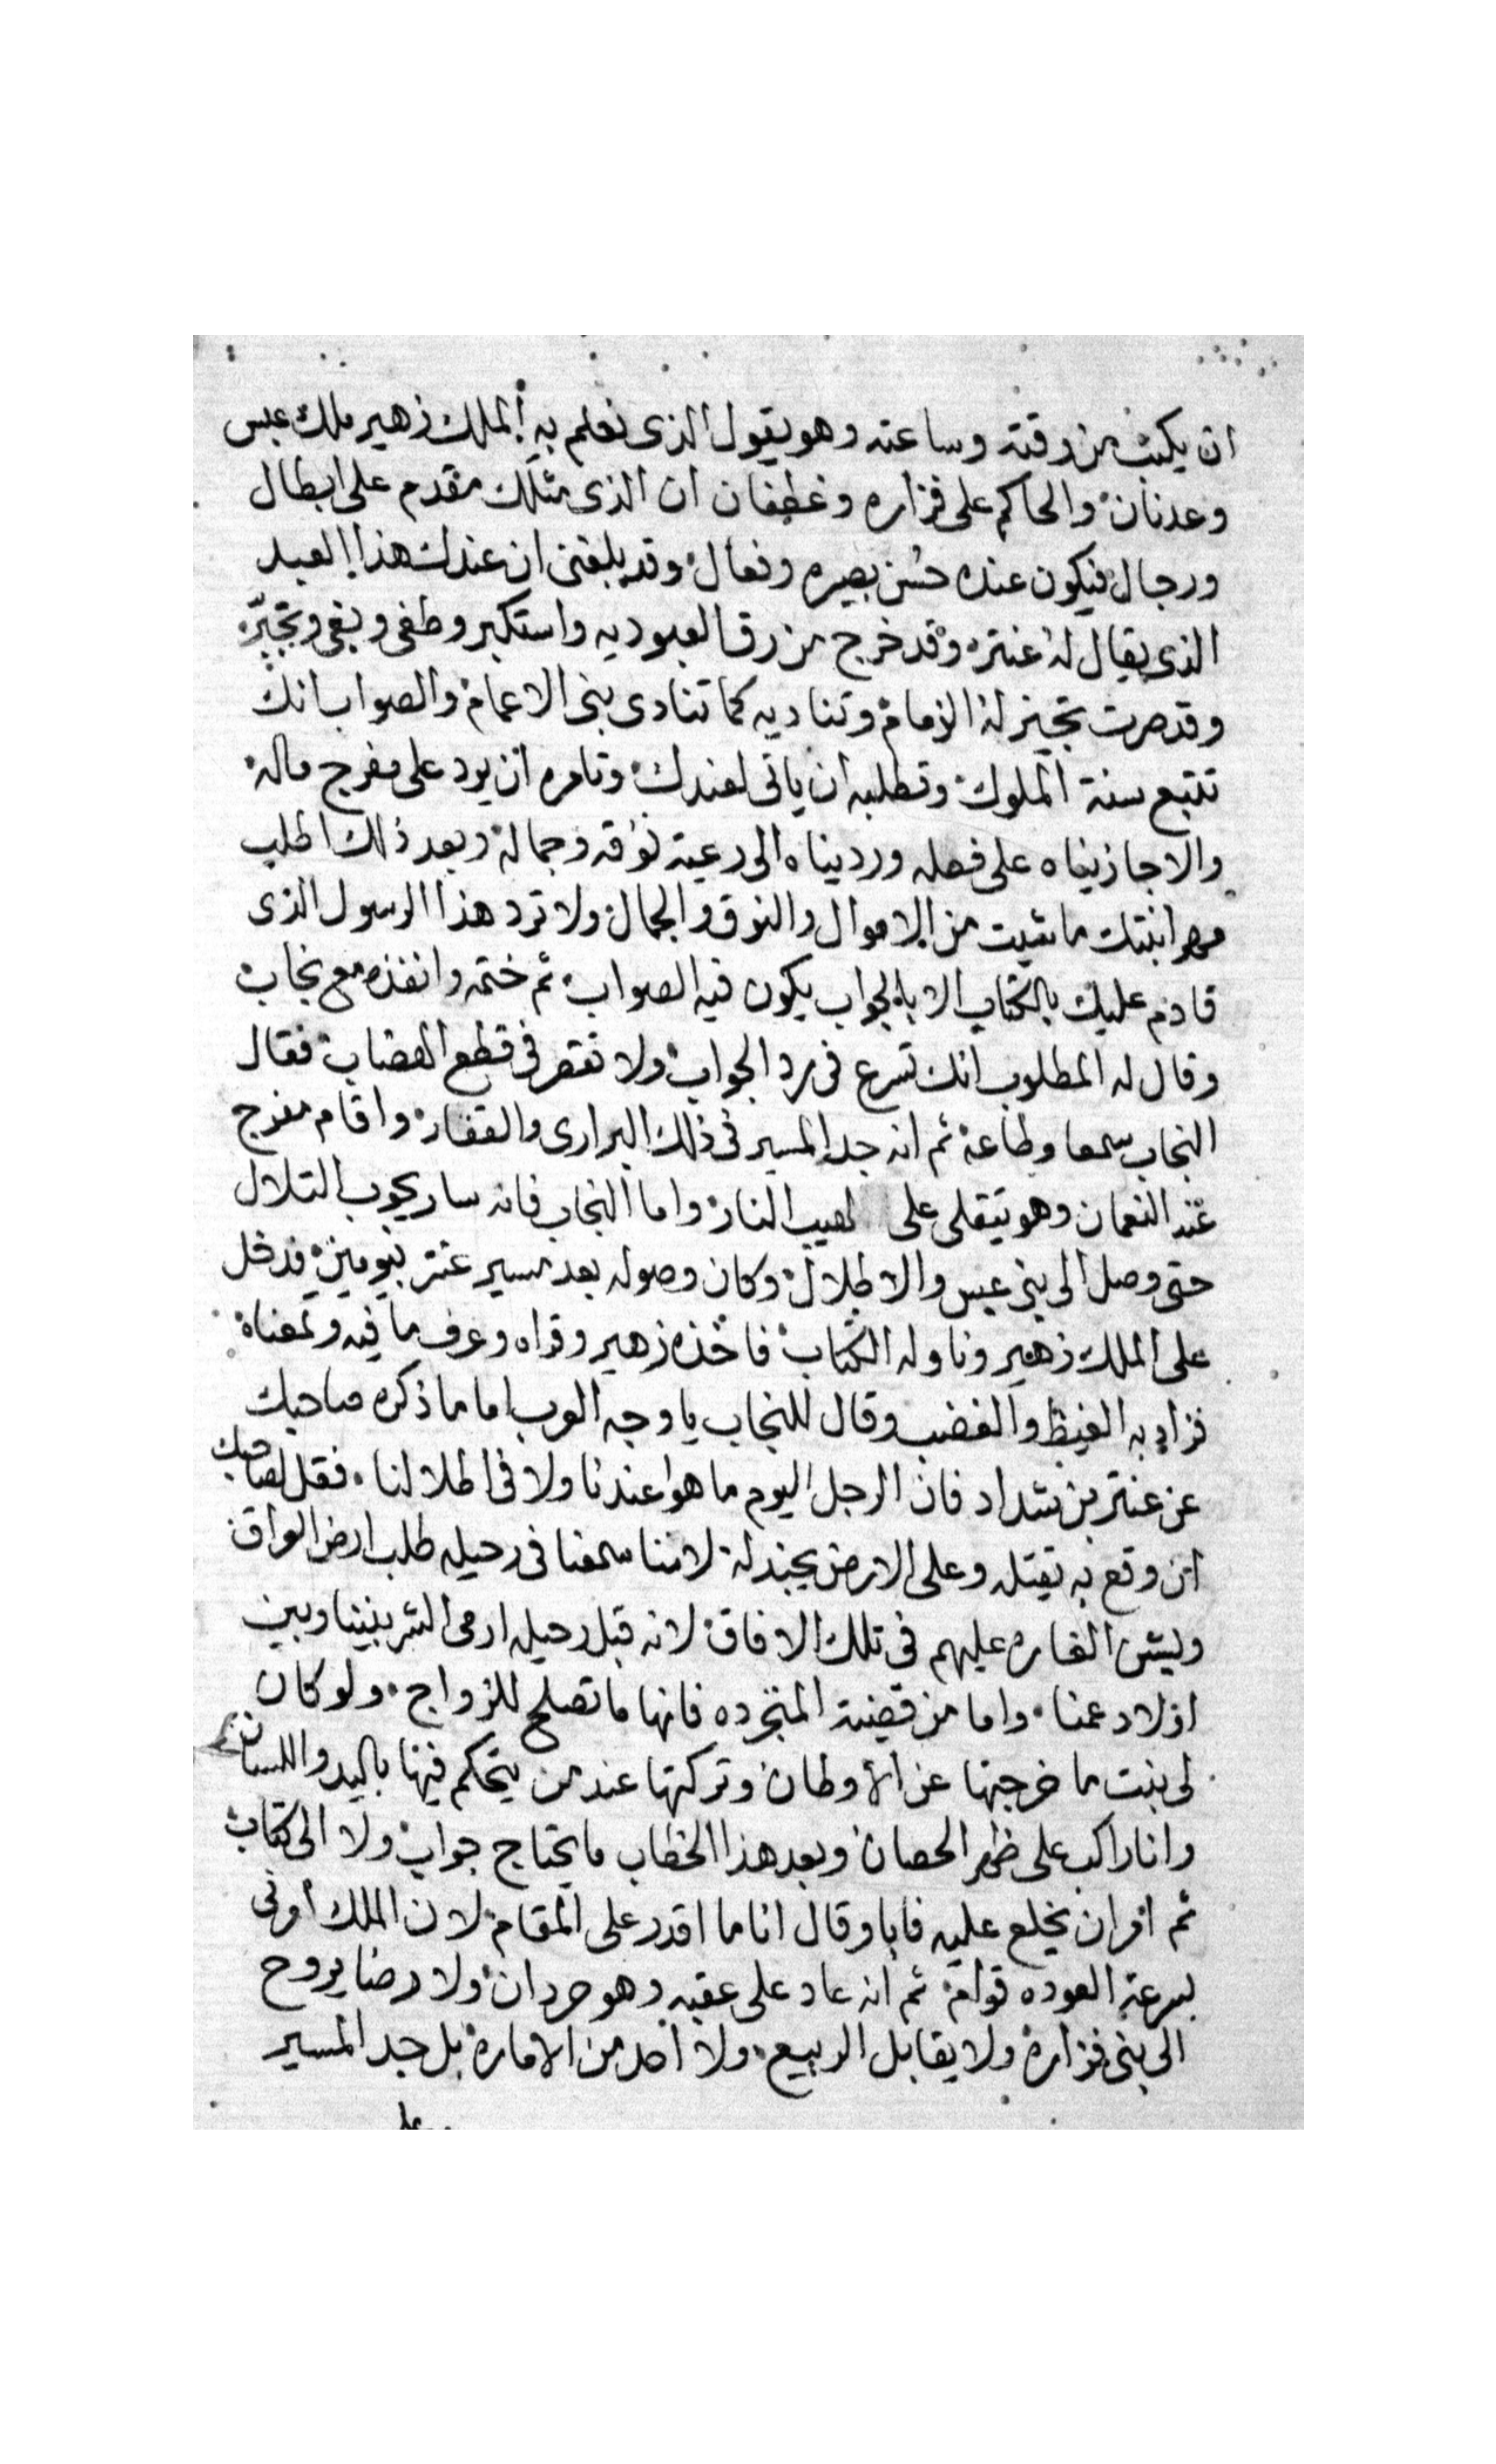 ان يكتب من وقته وساعته وهو يقول الذى نعلم به الملك زهير ملك عبس
وعدنان والحاكم على فزاره وغطفان ان الذى مثلك مقدم على ابطال
ورجال فيكون عنده حسن بصيره وفعال وقد بلغنى ان عندك هذا العبد
الذى يقال له عنتره وقد خرج من رق العبوديه واستكبر وطغى وبغى وتجبّر
وقد صرت تجيز له الزمام وتناديه كما تنادى بنى الاعمام والصواب انك
تتبع سنة الملوك وتطلبه ان ياتى لعندك وتامره ان يرد على مفرج ماله
والا جازيناه على فعله ورديناه الى رعية نوقه وجماله وبعد ذلك اطلب
مهر ابنتك ما شيت من الاموال والنوق والجمال ولا ترد هذا الرسول الذى
قادم عليك بالكتاب الا بالجواب يكون فيه الصواب ثم ختمه وانفذه مع نجاب
وقال له المطلوب انك تسرع فى رد الجواب ولا تقصر فى قطع الهضاب فقال
النجاب سمعا وطاعه ثم انه جد المسير فى ذلك البرارى والقفار واقام مفرج
عند النعمان وهو يتقلى على لهيب النار واما النجاب فانه سار يجوب التلال
حتى وصل الى بنى عبس والاطلال وكان وصوله بعد مسير عنتر بيومين فدخل
على الملك زهير وناوله الكتاب فاخذه زهير وقراه وعرف ما فيه ومعناه
فزاد به الغيظ والغضب وقال للنجاب يا وجه العرب اما ما ذكره صاحبك
عن عنتر بن شداد فان الرجل اليوم ما هو عندنا ولا فى اطلالنا فقل لصاحبك
ان وقع به يقتله وعلى الارض يجندله لاننا سمعنا فى رحيله طلب ارض العراق
ويشن الغاره عليهم فى تلك الافاق لانه قبل رحيله ارمى الشر بيننا وبين
اولاد عمنا واما من قضية المتجرده فانها ما تصلح للزواج ولو كان
لى بنت ما خرجتها عن الاوطان وتركتها عند من يتحكم فيها باليد واللسان
وانا راكب على ظهر الحصان وبعد هذا الخطاب ما يحتاج جواب ولا الى كتاب
ثم امر ان يخلع عليه فابا وقال انا ما اقدر على المقام لان الملك اوصى
بسرعة العوده قوام ثم انه عاد على عقبه وهو حردان ولا رضا يروح
الى بنى فزاره ولا يقابل الربيع ولا احد من الاماره بل جد المسير
على